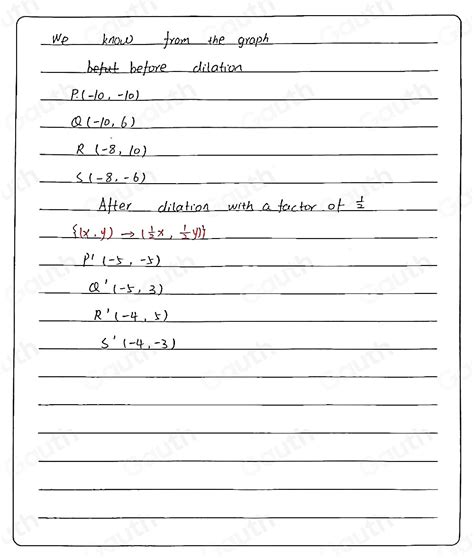 We know from the graph
befut before dilation
P(-10, -10)
Q(-10, 6)
R (-8, 10)
S(-8, -6)
After dilation with a factor of 1/2
{(x, y) → (1/2x, 1/2y)}
P' (-5, -5)
Q' (-5, 3)
R' (-4, 5)
S' (-4, -3)